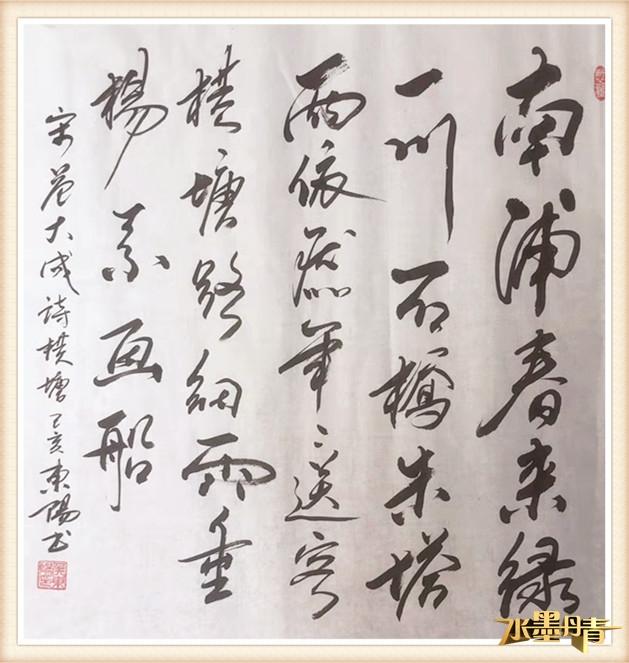 南浦春来绿
一川石橋朱塔
两依然年〻送客
横塘路细雨重
楊系画船
宋范大成詩横塘己亥東陽书
水墨丹青